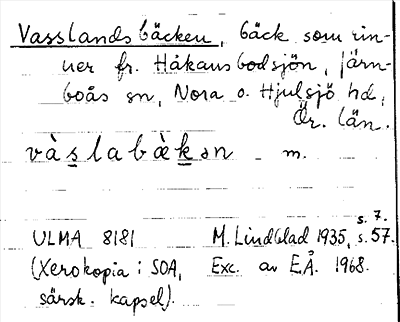 Vasslandsbäcken, bäck som rin-
ner fr. Håkansbodsjön, Järn-
boås sn, Nora o. Hjulsjö hd,
Ör. län.
vàslabæ̀kən m.
s. 7.
ULMA 8181 M. Lindblad 1935, s. 57.
(Xerokopia i SOA, Exc. av E.Å. 1968.
särsk. kapsel).